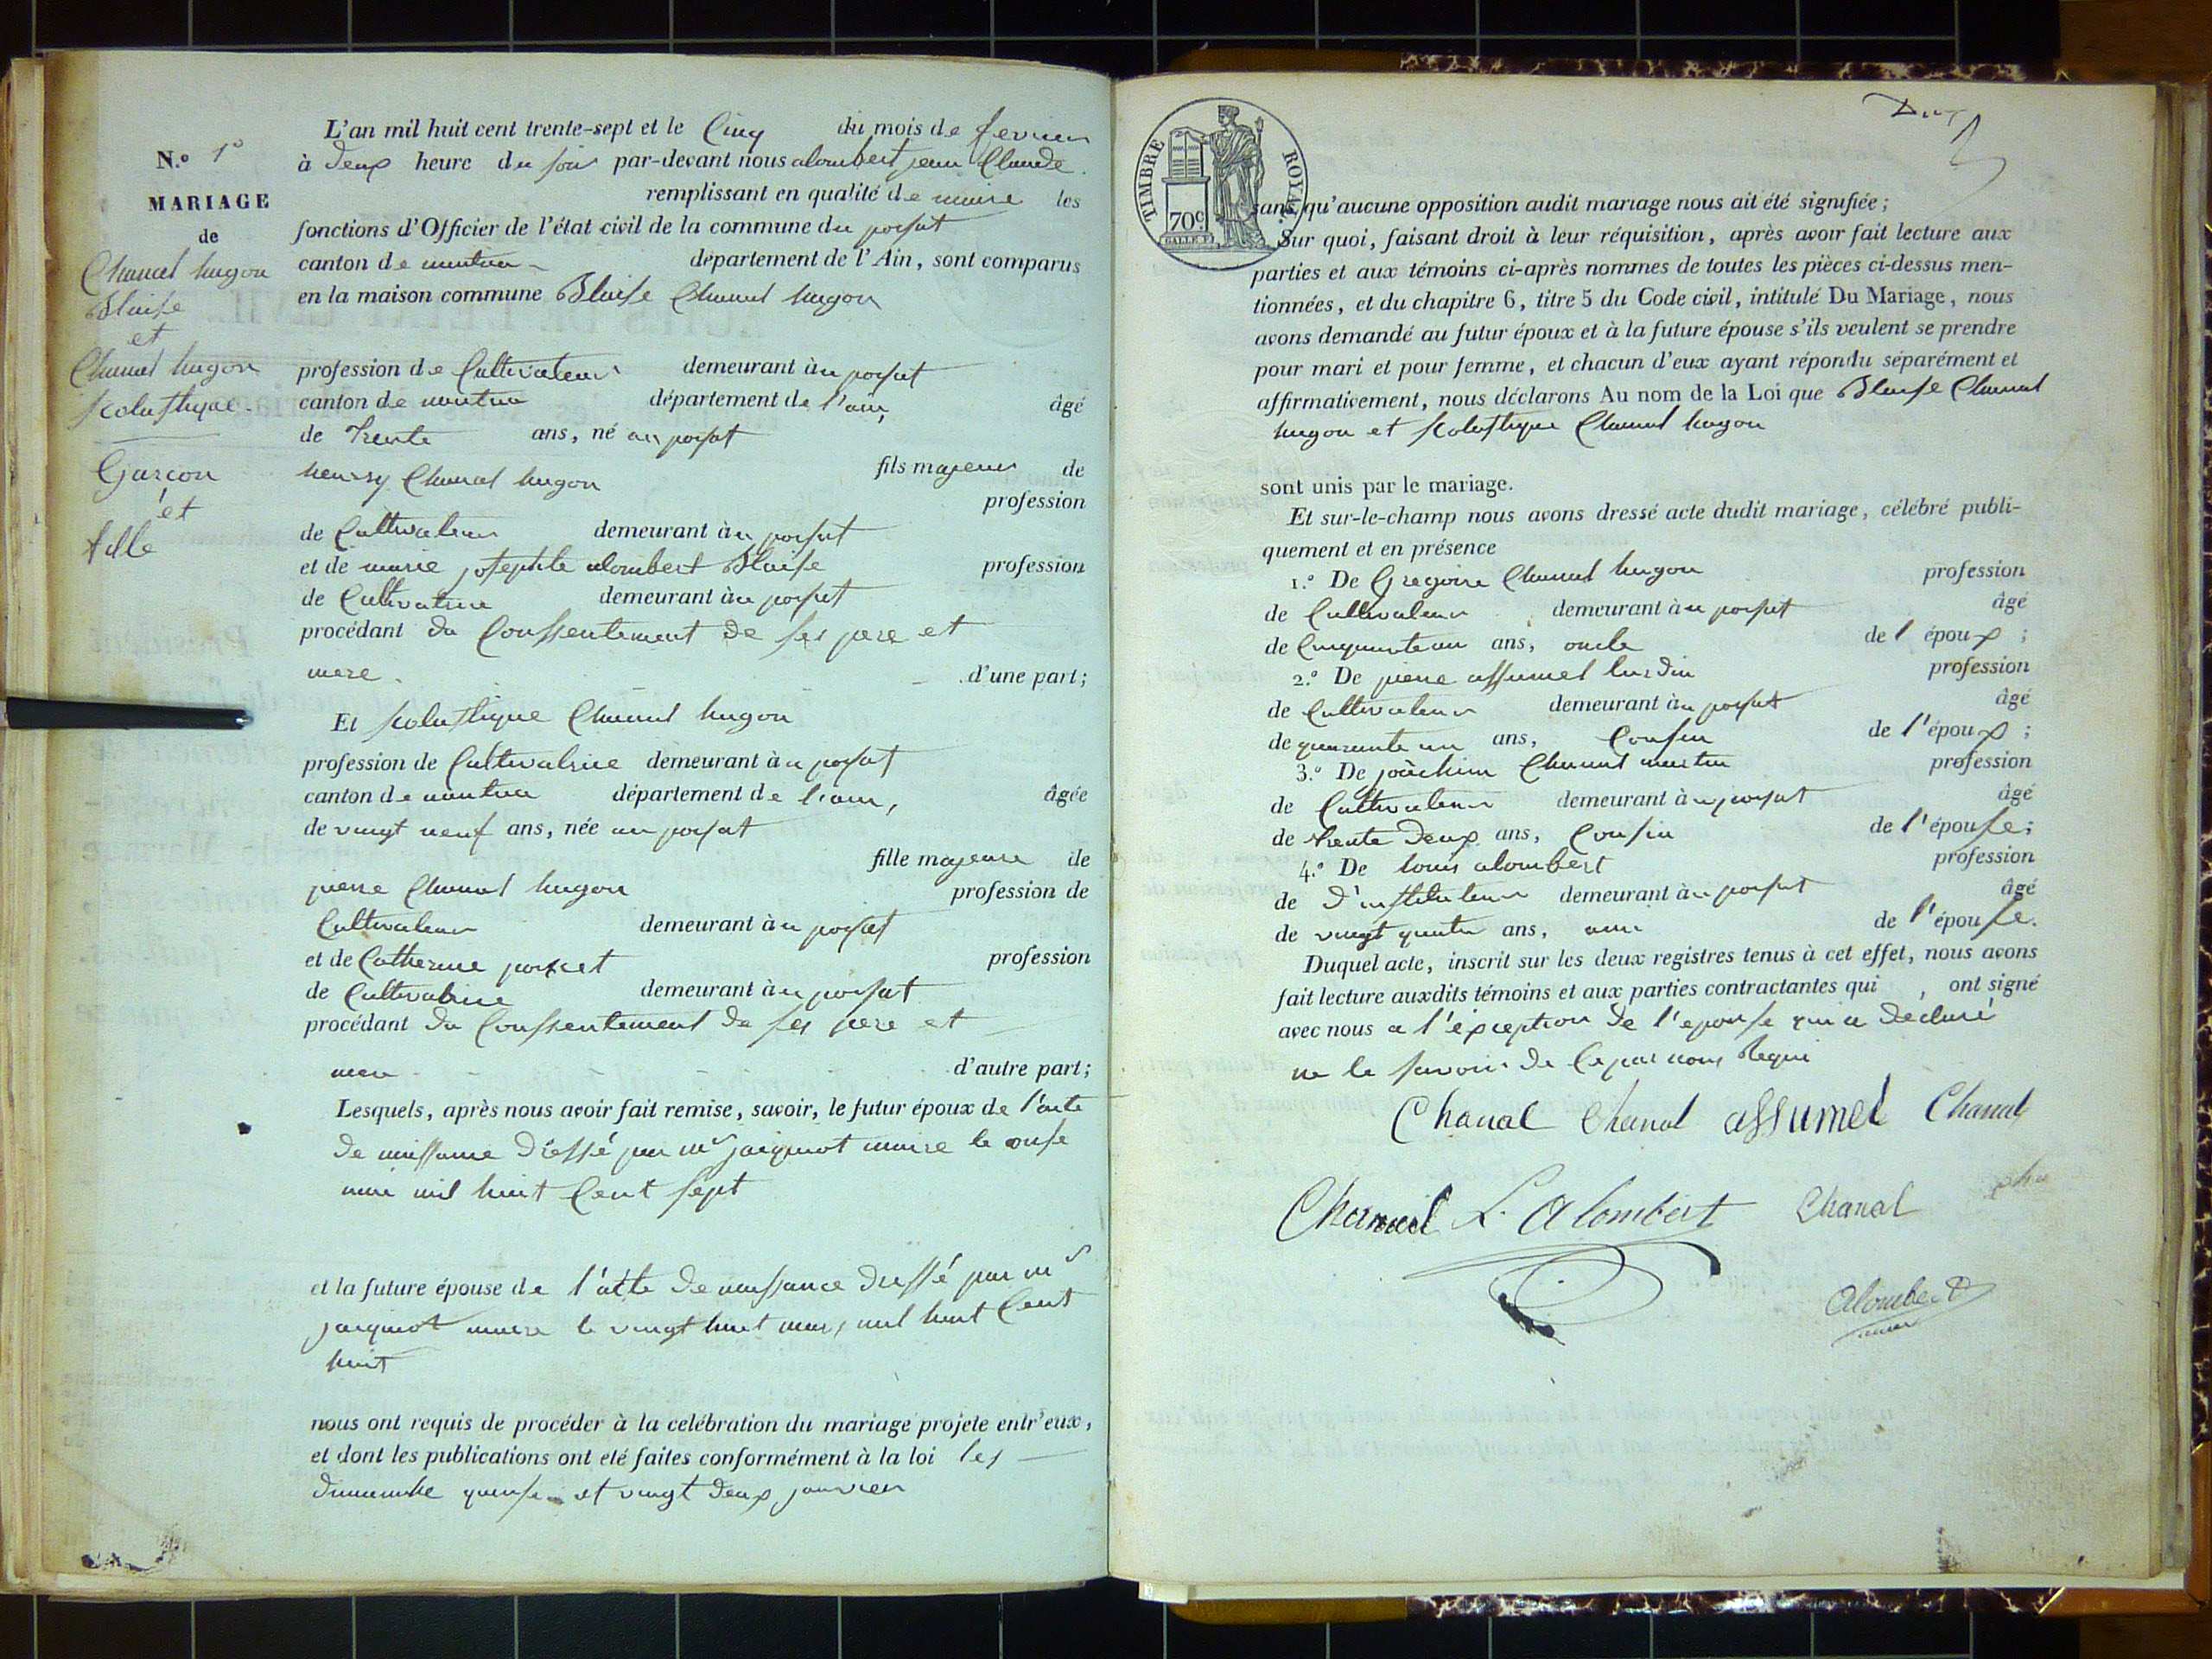 N.° 1°
MARIAGE
de
Chanal hugon
Blaise
et
Chanal hugon
scolastique.
Garçon
et
fille
L'an mil huit cent trente-sept et le Cinq du mois de fevrier
à deux heure du soir par-devant nous alombert jean Claude.
remplissant en qualité de maire les
fonctions d'Officier de l'état civil de la commune du poisat
canton de nantua département de l'Ain, sont comparus
en la maison commune Blaise Chanal hugon
profession de Cultivateur demeurant à u poisat
canton de nantua département de l'ain, âgé
de trente ans, né au poisat
fils majeur de
henry Chanal hugon profession
de Cultivateur demeurant à u poisat
et de marie josephte alombert Blaise profession
de Cultivatrice demeurant à u poisat
procédant du Conssentement de ses pere et
mere. d'une part;
Et scolastique Chanal hugon
profession de Cultivatrice demeurant à u poisat
canton de nantua département de l'ain, âgée
de vingt neuf ans, née au poisat
fille majeure de
pierre Chanal hugon profession de
Cultivateur demeurant à u poisat
et de Catherine poncet profession
de Cultivatrice demeurant à u poisat
procédant du Conssentement de ses pere et
mere d'autre part;
Lesquels, après nous avoir fait remise, savoir, le futur époux de l'acte
de naissance dréssé par mr jacquinot maire le onse
mai mil huit Cent sept
et la future épouse de l'acte de naissance dressé par mr
jacquinot maire le vingt huit mars mil huit Cent
huit
nous ont requis de procéder à la celébration du mariage projete entr'eux,
et dont les publications ont eté faites conformément à la loi les
dimanche quinse et vingt deux janvier
TIMBRE ROYAL
70c
sans qu'aucune opposition audit mariage nous ait été signifiée;
Sur quoi, faisant droit à leur réquisition, après avoir fait lecture aux
parties et aux témoins ci-après nommes de toutes les pièces ci-dessus men-
tionnées, et du chapitre 6, titre 5 du Code civil, intitulé Du Mariage, nous
avons demandé au futur époux et à la future épouse s'ils veulent se prendre
pour mari et pour femme, et chacun d'eux ayant répondu séparément et
affirmativement, nous déclarons Au nom de la Loi que Blaise Chanal
hugon et scolastique Chanal hugon
sont unis par le mariage.
Et sur-le-champ nous avons dressé acte dudit mariage, célébré publi-
quement et en présence
1.° De Gregoire Chanal hugon profession
de Cultivateur demeurant à u poisat âgé
de Cinquante un ans, oncle de l'époux;
2.° De pierre assumel lurdin profession
de Cultivateur demeurant à u poisat âgé
de quarante un ans, Cousin de l'époux;
3.° De joachim Chanal martin profession
de Cultivateur demeurant à u poisat âgé
de trente deux ans, Cousin de l'épouse;
4.° De louis alombert profession
de d'instituteur demeurant à u poisat âgé
de vingt quatre ans, ami de l'épouse.
Duquel acte, inscrit sur les deux registres tenus à cet effet, nous avons
fait lecture auxdits témoins et aux parties contractantes qui, ont signé
avec nous a l'éxception de l'epouse qui a déclaré
ne le savoir de Ce par nous Requi
Chanal Chanal assumel Chanal
Chanail L. Alombert Chanal
Alombert
maire